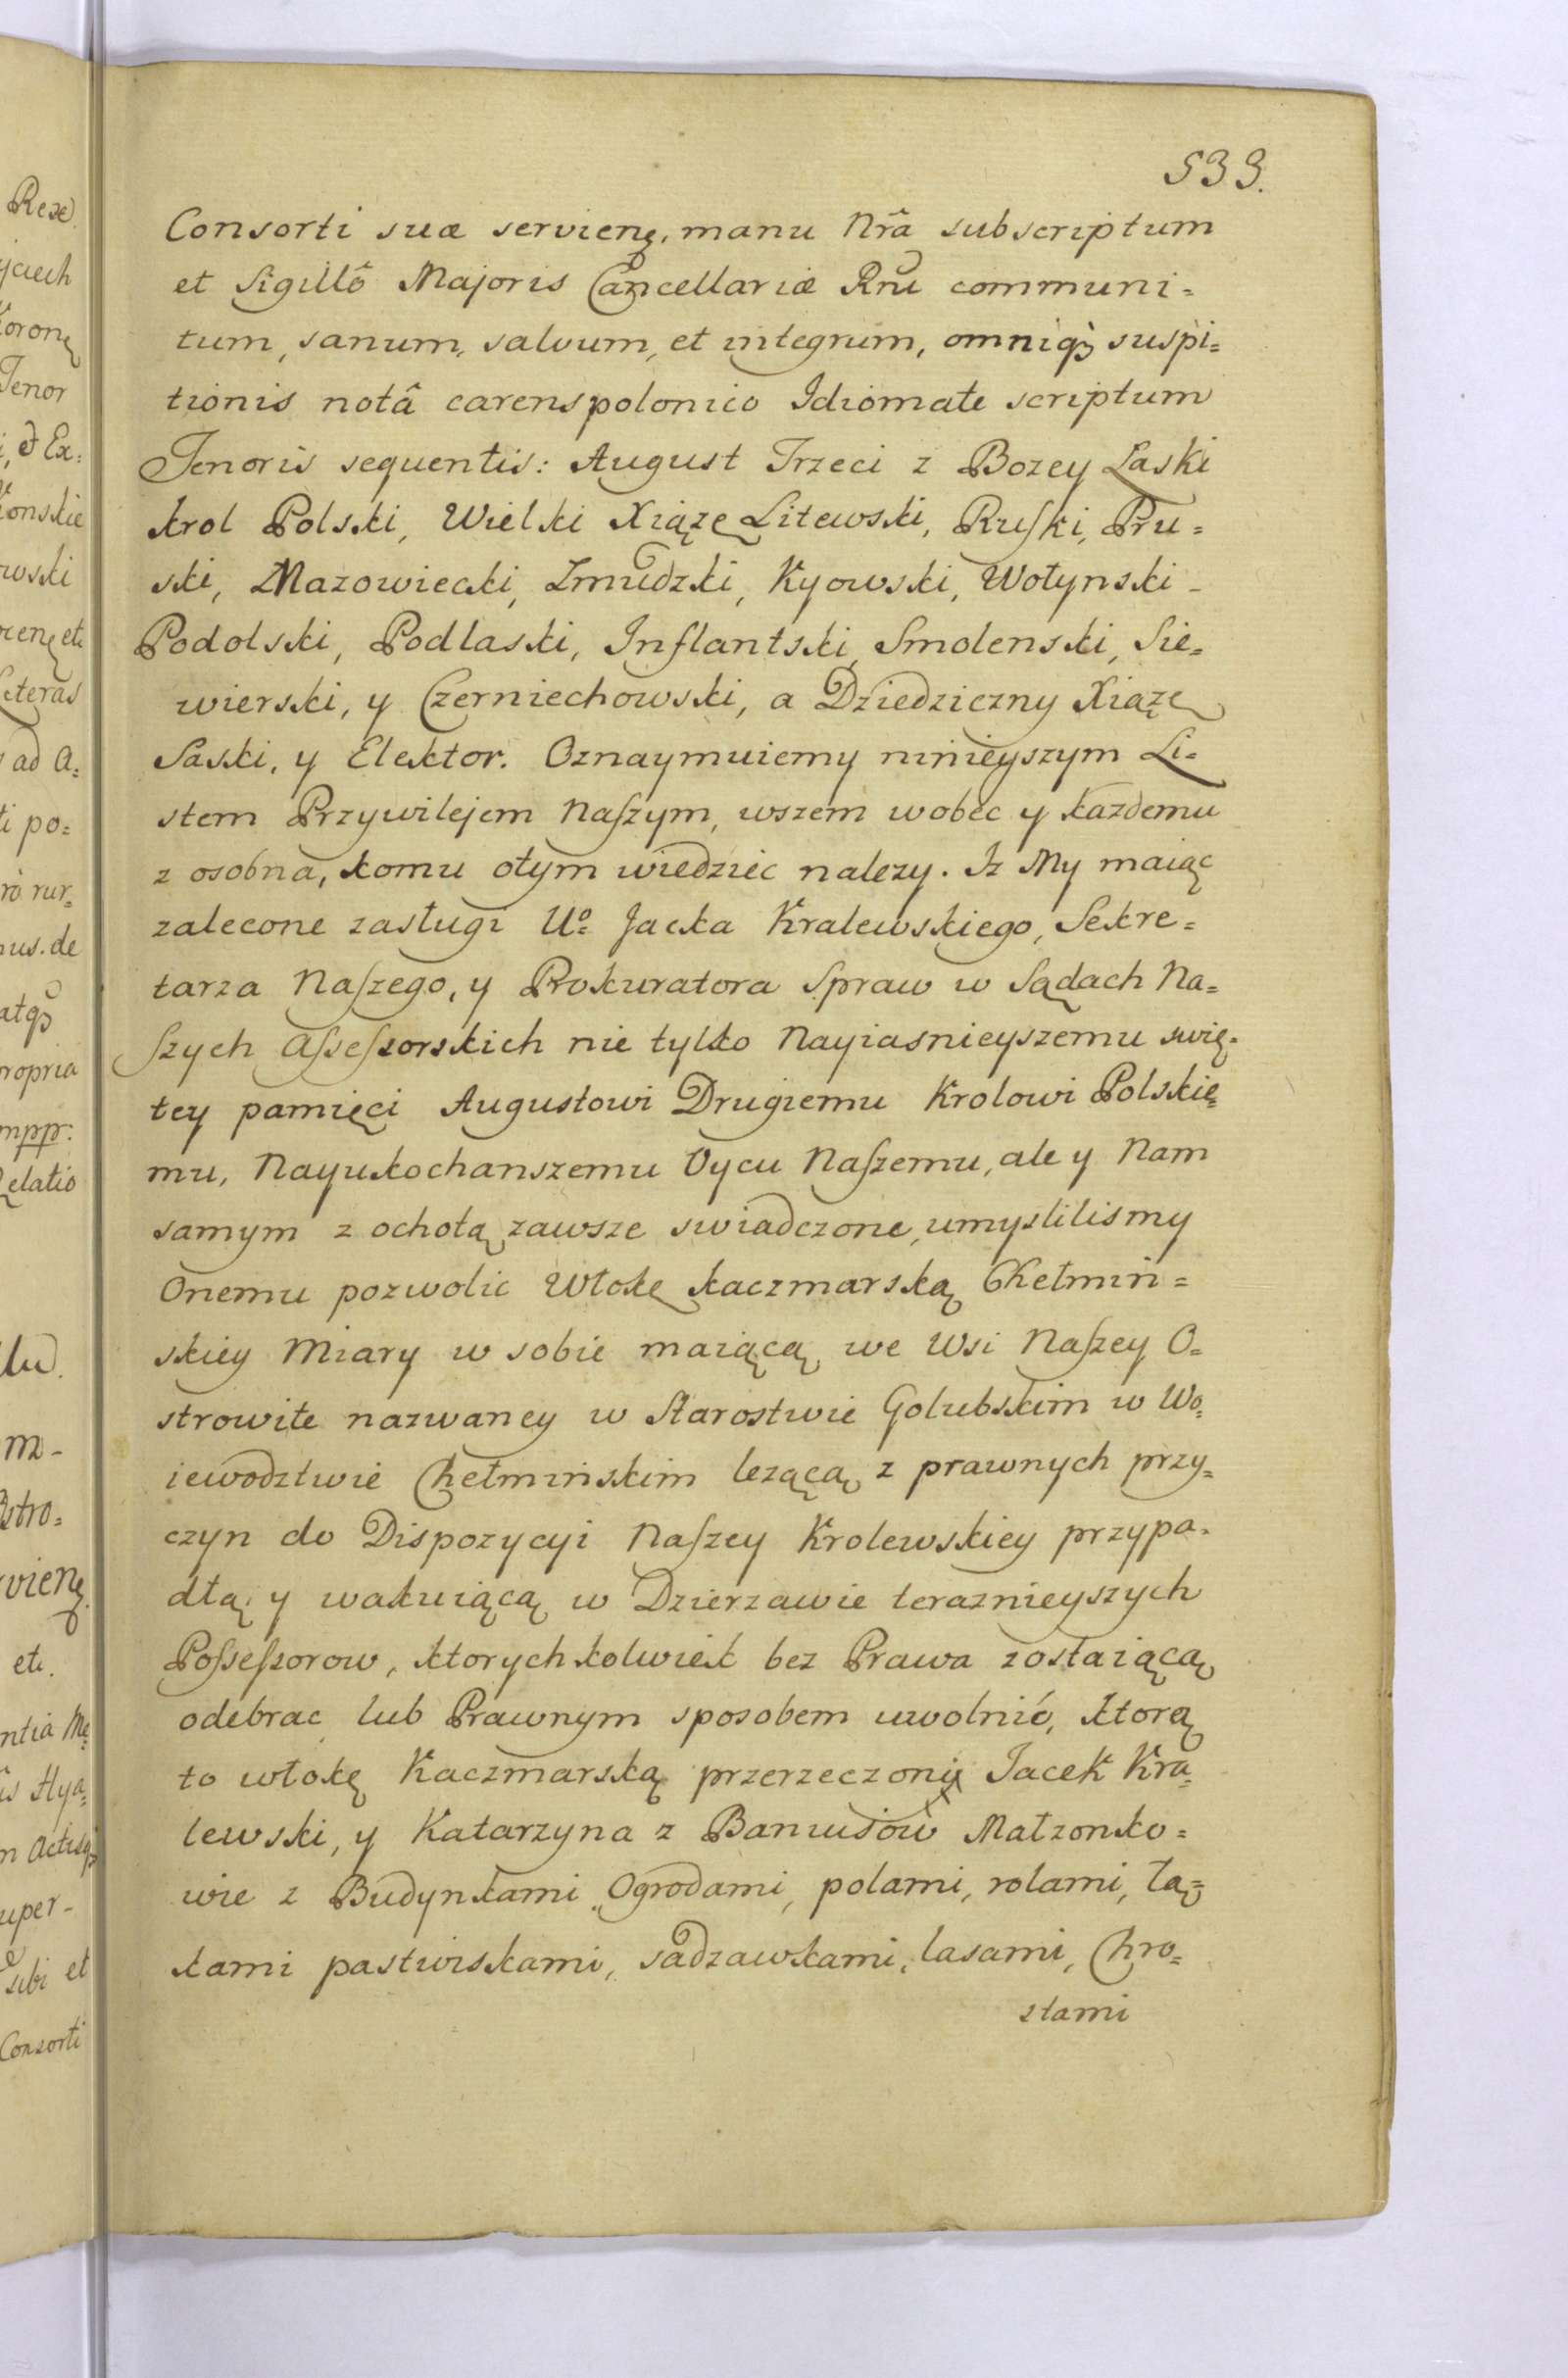 533.
Consorti suæ servienę, manu Nrâ subscriptum
et Sigillô Majoris Cancellariæ Rnũ communi=
tum, sanum, salvum, et integrum, omniqꝫ suspi=
tionis notâ carens polonico Idiomate scriptum
Tenoris sequentis: August Trzeci z Bozey Laski
krol Polski, Wielki Xiąze Litewski, Ruſki, Pru=
ski, Mazowiecki, Zmudzki, Kyowski, Wołynski
Podolski, Podlaski, Inflantski, Smolenski, Sie=
wierski, y Czerniechowski, a Dziedziczny Xiąże
Saski, y Elektor. Oznaymuiemy ninieyszym Li=
stem Przywilejem Naſzym, wszem wobec y kazdemu
z osobna, komu otym wiedziec nalezy. Iz My maiąc
zalecone zasługi Uº Jacka Kralewskiego, Sekre=
tarza Naſzego, y Prokuratora Spraw w Sądach Na=
ſzych Aſseſsorskich nie tylko Nayiasnieyszemu swię=
tey pamięci Augustowi Drugiemu Krolowi Polskie=
mu, Nayukochanszemu Oycu Naſzemu, ale y Nam
samym z ochotą zawsze swiadczone, umyslilismy
Onemu pozwolic Włokę kaczmarską Chełmiń=
skiey Miary w sobie maiącą we Wsi Naſzey O=
strowite nazwaney w Starostwie Golubskim w Wo=
iewodztwie Chełmińskim lezącą z prawnych przy=
czyn do Dispozycyi Naſzey Krolewskiey przypa=
dłą y wakuiącą w Dzierzawie teraznieyszych
Poſseſsorow, ktorychkolwiek bez Prawa zostaiącą
odebrac lub Prawnym sposobem uwolnić, ktorą
to włokę Kaczmarską przerzeczony Jacek Kra=
lewski, y Katarzyna z Małzonko=
wie z Budynkami Ogrodami, polami, rolami, łą=
kami pastwiskami, sadzawkami, lasami, Chro=
stami
Rexe
yciech
Koronę
Tenor
owski
Literas
ad A=
ti po=
propria
mpp:
Relatio
m-
Ostro=
vienę
etc.
uper-
sibi et
Consorti